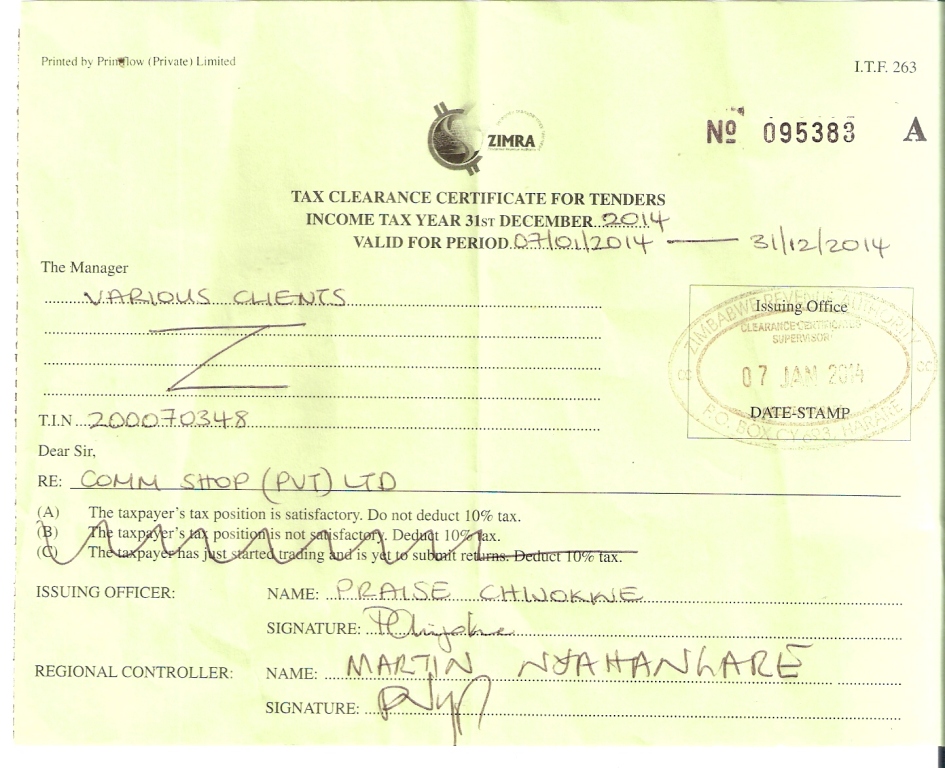 Printed by Printflow (Private) Limited
I.T.F. 263
ZIMRA
No 095383 A
TAX CLEARANCE CERTIFICATE FOR TENDERS
INCOME TAX YEAR 31ST DECEMBER 2014
VALID FOR PERIOD 07/01/2014 — 31/12/2014
The Manager
VARIOUS CLIENTS
Issuing Office
ZIMBABWE REVENUE AUTHORITY
CLEARANCE CERTIFICATES
SUPERVISOR
07 JAN 2014
DATE-STAMP
P.O. BOX CY HARARE
T.I.N 200070348
Dear Sir,
RE: COMM SHOP (PVT) LTD
(A) The taxpayer's tax position is satisfactory. Do not deduct 10% tax.
(B) The taxpayer's tax position is not satisfactory. Deduct 10% tax.
(C) The taxpayer has just started trading and is yet to submit returns. Deduct 10% tax.
ISSUING OFFICER: NAME: PRAISE
SIGNATURE:
REGIONAL CONTROLLER: NAME: MARTIN
SIGNATURE: